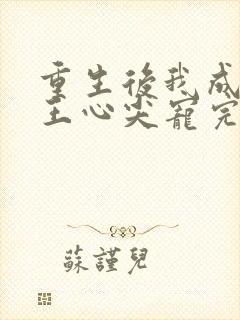 重生後我成
王心尖寵完
蘇謹兒